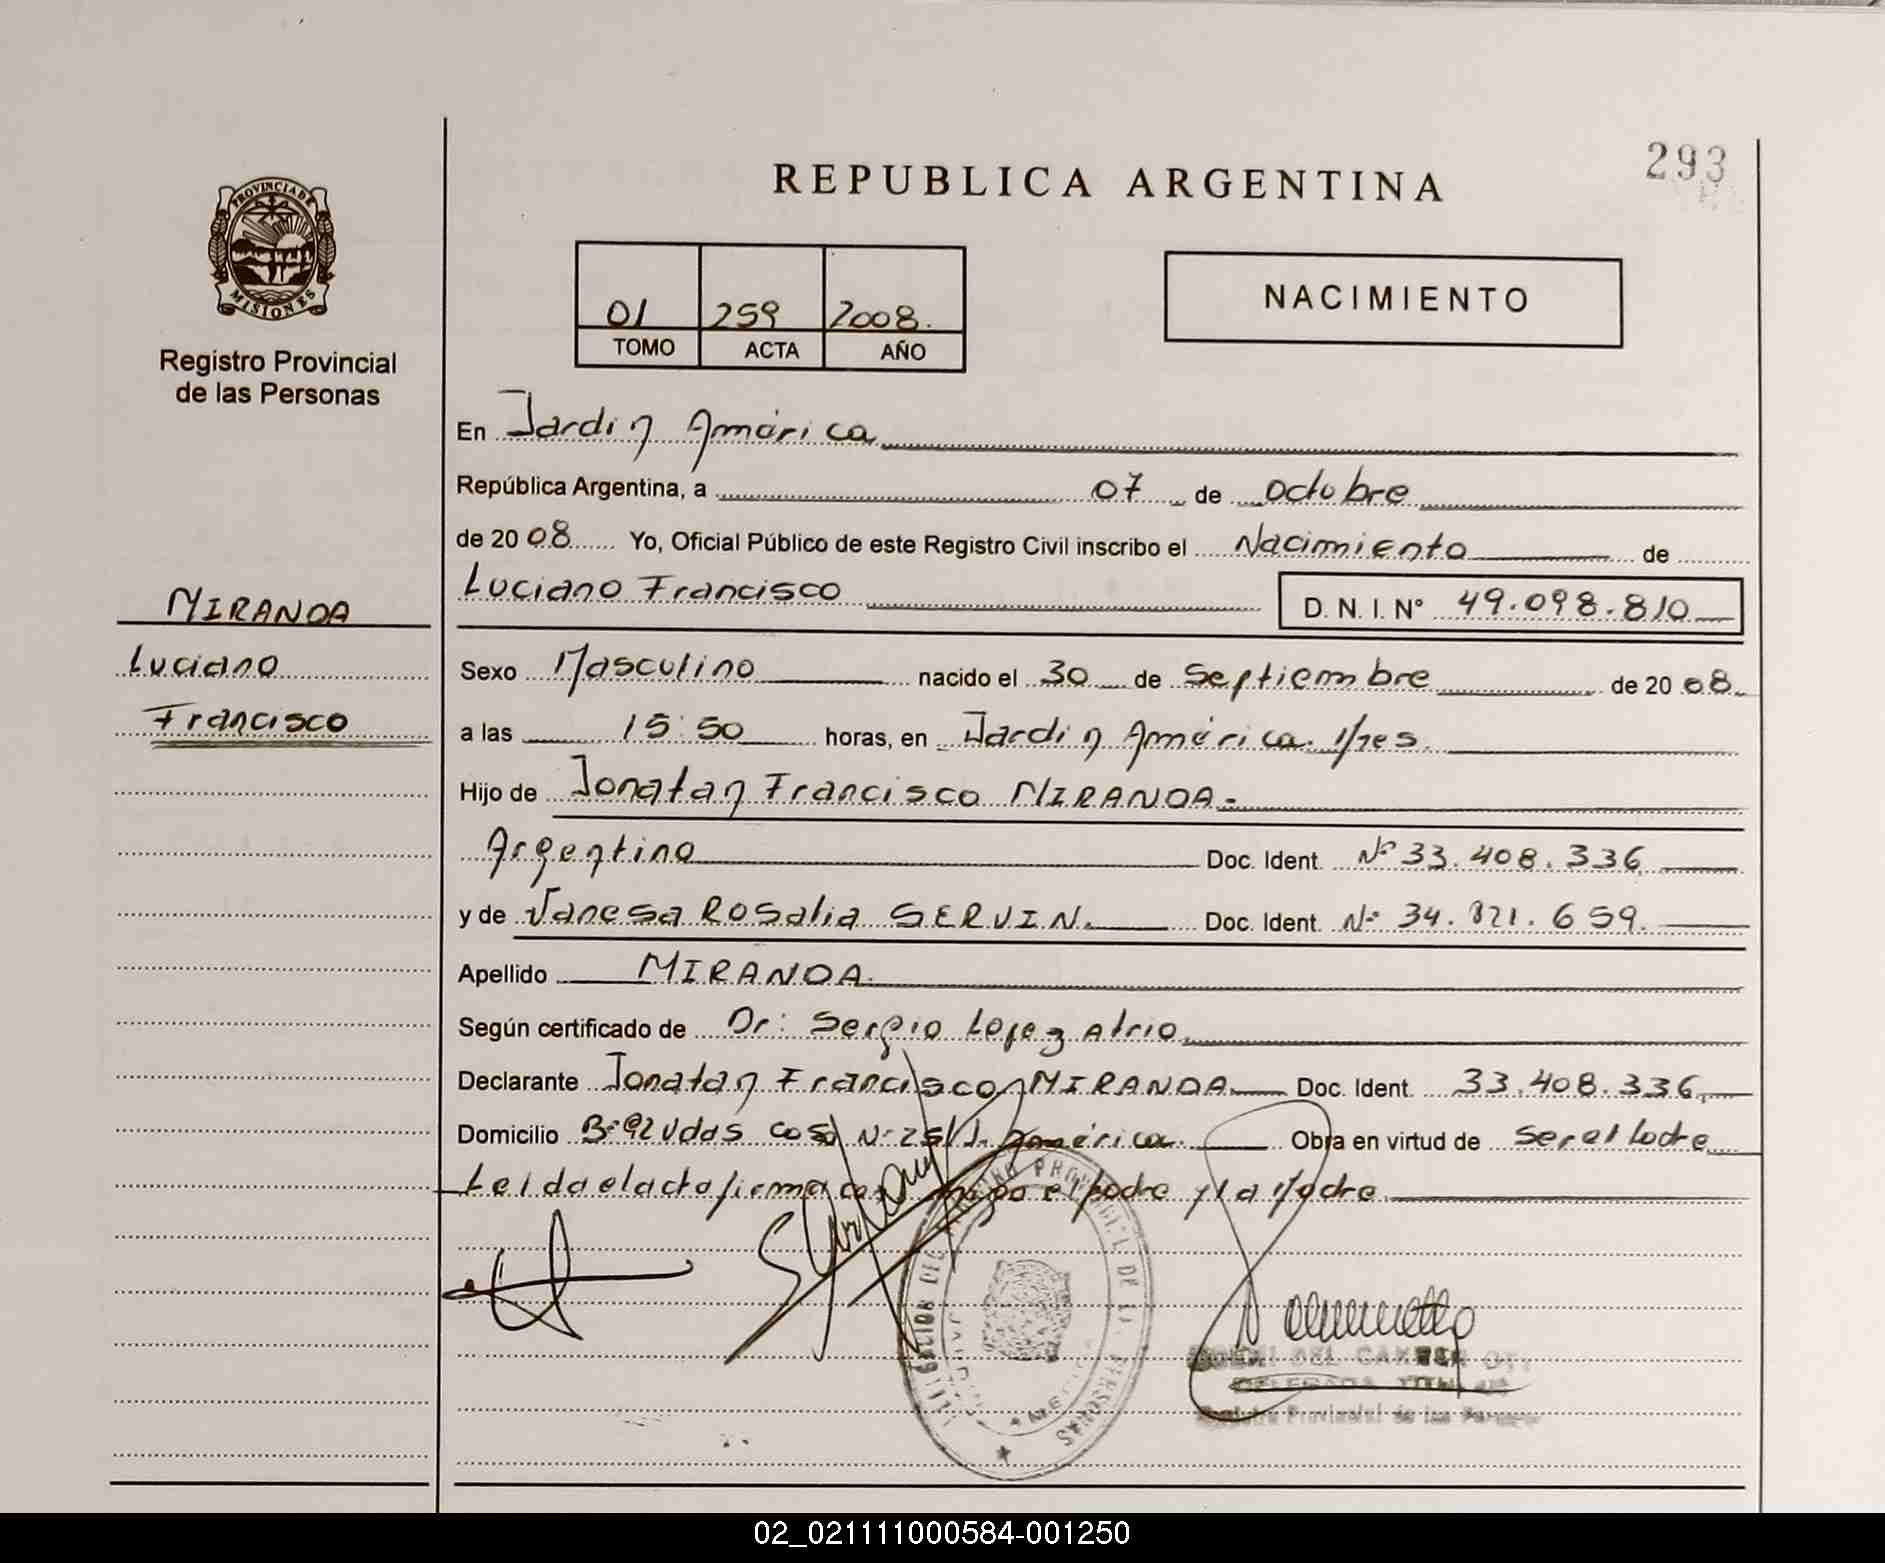 293
REPUBLICA ARGENTINA
PROVINCIA DE
MISIONES
Registro Provincial
de las Personas
01 259 2008.
TOMO ACTA AÑO
NACIMIENTO
En Jardin América
República Argentina, a 07 de octubre
de 2008 Yo, Oficial Público de este Registro Civil inscribo el Nacimiento de
Luciano Francisco D. N. I. N° 49.098.810
MIRANDA
Luciano
Francisco
Sexo Masculino nacido el 30 de Septiembre de 2008.
a las 15:50 horas, en Jardin América. Mnes.
Hijo de Jonatan Francisco MIRANDA.-
Argentina Doc. Ident. N° 33.408.336
y de Vanesa Rosalia SERVIN. Doc. Ident. N° 34.821.659.
Apellido MIRANDA.
Según certificado de Dr: Sergio Lopez Atrio.
Declarante Jonatan Francisco MIRANDA Doc. Ident. 33.408.336
Domicilio casa N° 25 J. América. Obra en virtud de ser el Padre
Leida el acta firma el padre y la Madre
DEL CARMEN
DELEGADA TITULAR
Registro Provincial de las Personas
02_021111000584-001250